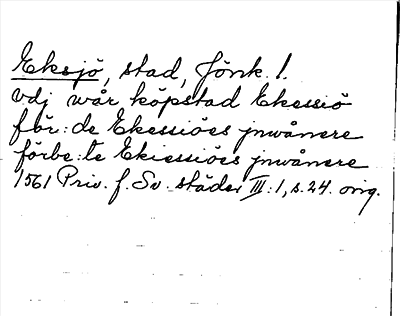 Eksjö, stad, Jönk. l.
vdj wår köpstad Ekessiö
för:de Ekessiöes jnwånere
förbe:te Ekiessiöes jnwånere
1561 Priv. f. Sv. städer III:1, s. 24. orig.